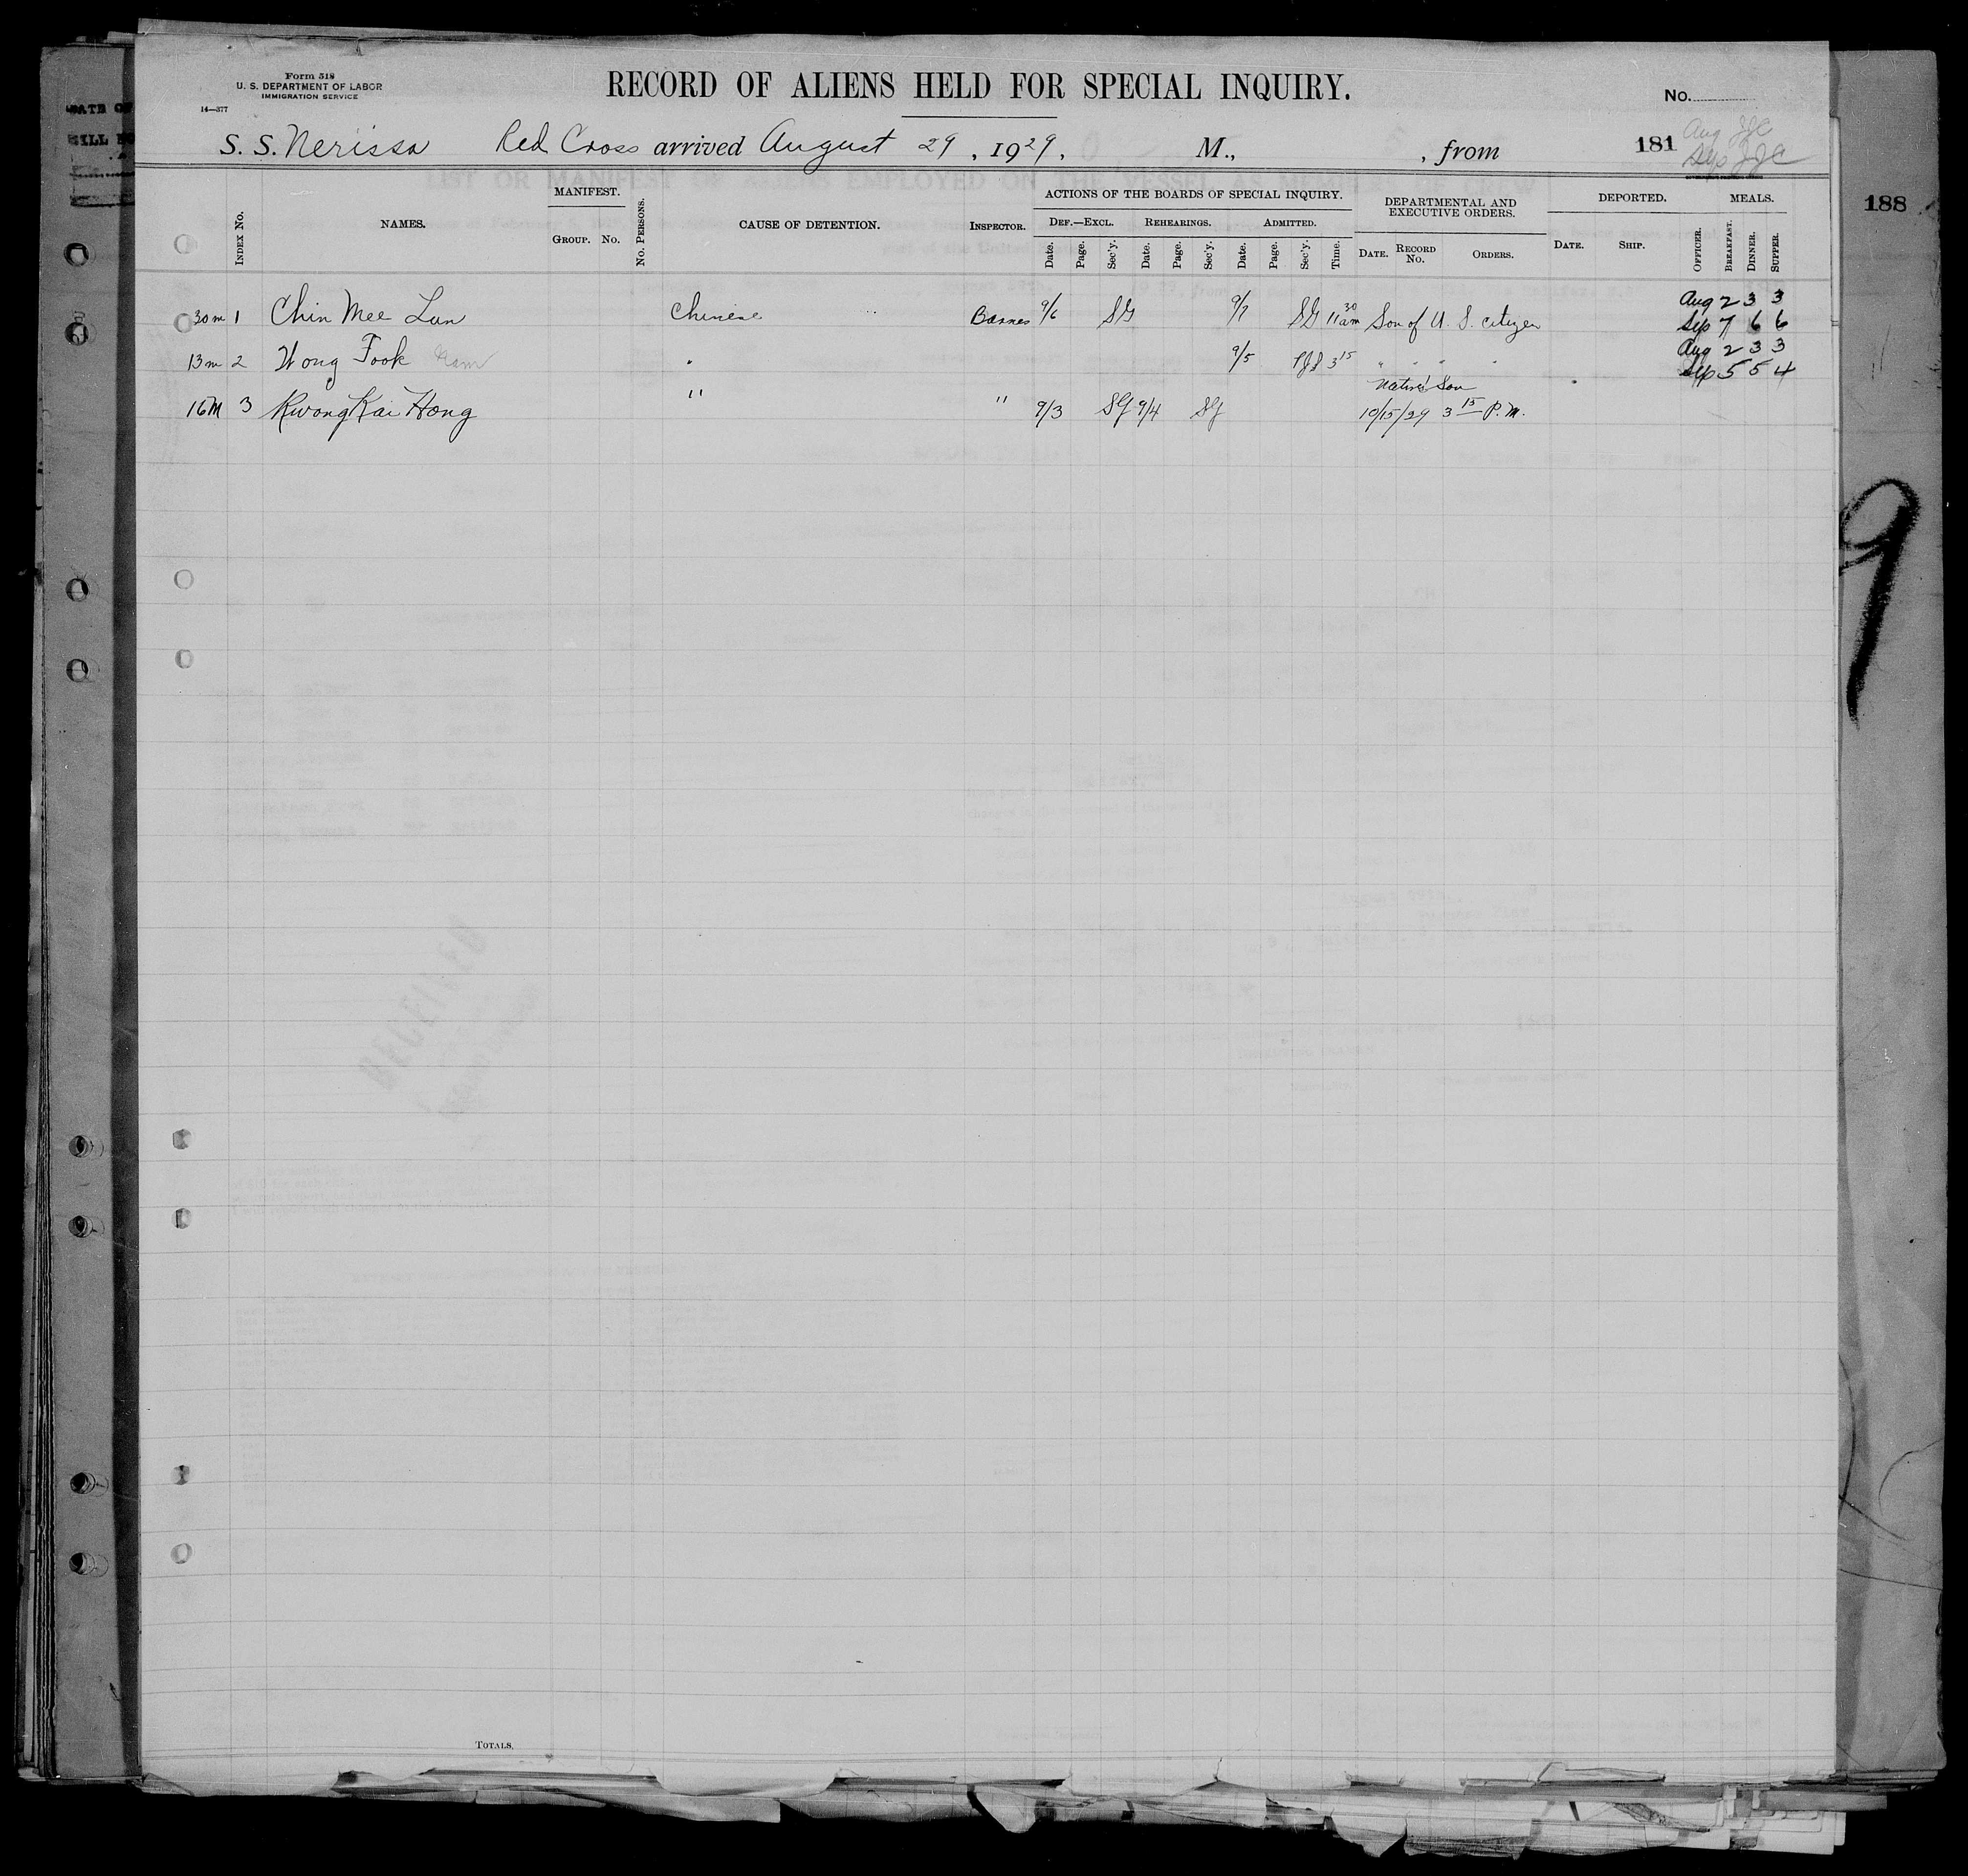 Form 518
U. S. DEPARTMENT OF LABOR
IMMIGRATION SERVICE
14—377
RECORD OF ALIENS HELD FOR SPECIAL INQUIRY.
No.
S. S. Nerissa Red Cross arrived August 29, 1929, M., , from
181
Aug JJC
Sep JJC
188
INDEX No.
NAMES.
MANIFEST.
GROUP. No.
No. PERSONS.
CAUSE OF DETENTION.
INSPECTOR.
ACTIONS OF THE BOARDS OF SPECIAL INQUIRY.
DEF.—EXCL. REHEARINGS. ADMITTED.
Date. Page. Sec'y. Date. Page. Sec'y. Date. Page. Sec'y. Time.
DEPARTMENTAL AND
EXECUTIVE ORDERS.
DATE. RECORD No. ORDERS.
DEPORTED.
DATE. SHIP.
MEALS.
OFFICER. BREAKFAST. DINNER. SUPPER.
Aug 2 3 3
30m 1 Chin Mee Lun Chinese Barnes 9/6 SG 9/7 SG 11 30 am Son of U. S. citizen Sep 7 6 6
Aug 2 3 3
13m 2 Wong Fook " 9/5 3 15 " " " " Sep 5 5 4
Native's Son
16M 3 Kwong Kai Hong " " 9/3 SG 9/4 SG 10/15/29 3 15 P.M.
TOTALS.
9